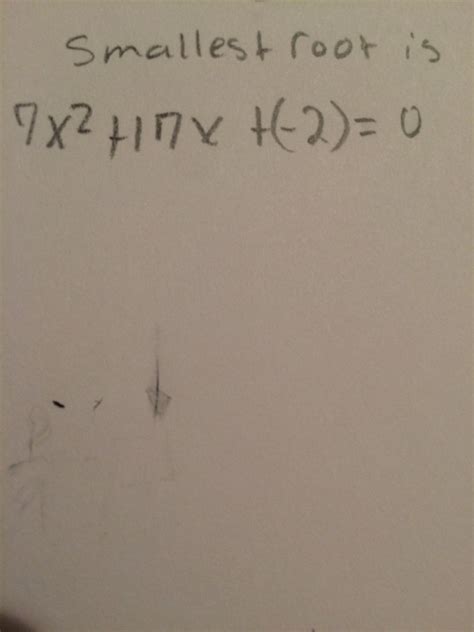 Smallest root is
7x²+17x +(-2)= 0